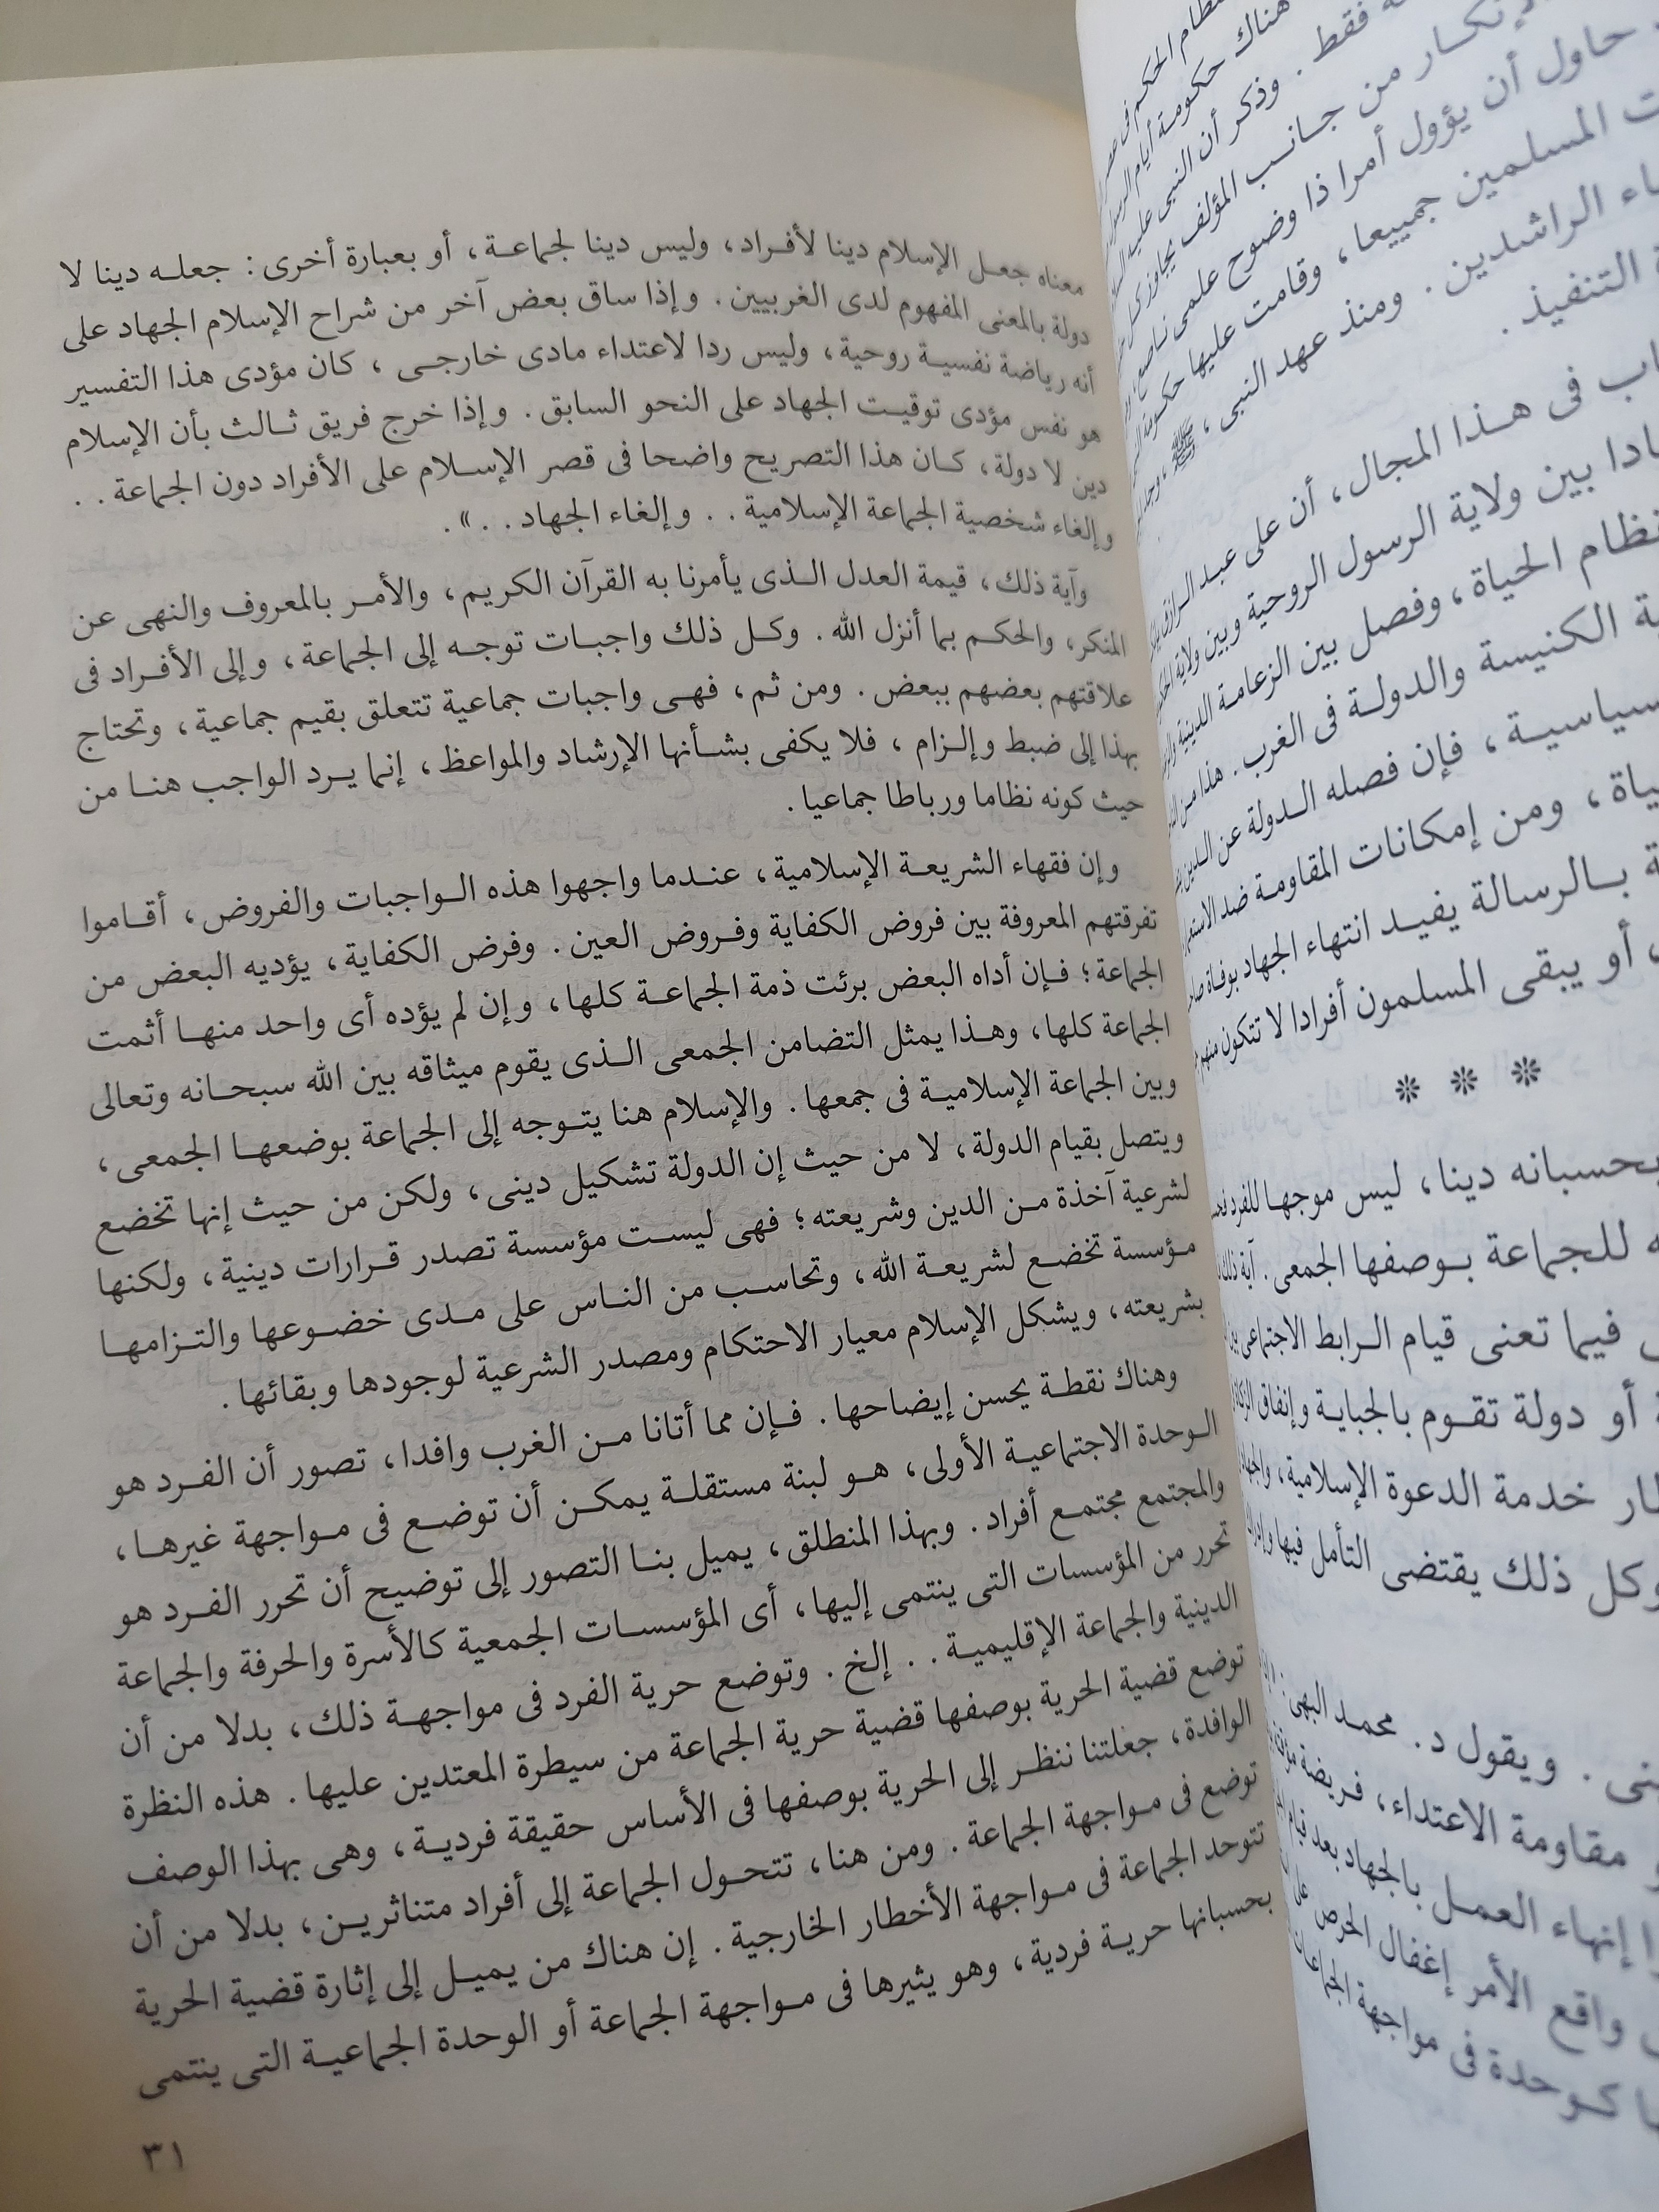 نظام الحكم فى عصر
هناك حكومة أيام الرسول
فقط . وذكر أن النبى عليه
الإنكار من جانب المؤلف يجاوز كل
حاول أن يؤول أمرا ذا وضوح علمى ناصع
المسلمين جميعا، وقامت عليها حكومة
الراشدين . ومنذ عهد النبى، ﷺ، وجدت
التنفيذ .
فى هذا المجال، أن على عبد الرازق
بين ولاية الرسول الروحية وبين ولاية
الحياة، وفصل بين الزعامة الدينية
الكنيسة والدولة فى الغرب . هذا من
فإن فصله الدولة عن الدين
ومن إمكانات المقاومة ضد
بالرسالة يفيد انتهاء الجهاد بوفاة
أو يبقى المسلمون أفرادا لا تتكون منهم
❊ ❊ ❊
بحسبانه دينا، ليس موجها للفرد
للجماعة بوصفها الجمعى . آية ذلك
فيما تعنى قيام الرابط الاجتماعى
أو دولة تقوم بالجباية وإنفاق الزكاة
خدمة الدعوة الإسلامية، والجهاد
وكل ذلك يقتضى التأمل فيها
ويقول د. محمد البهى :
مقاومة الاعتداء، فريضة
إنهاء العمل بالجهاد بعد قيام
واقع الأمر إغفال الحرص على
كوحدة فى مواجهة
معناه جعل الإسلام دينا لأفراد، وليس دينا لجماعة، أو بعبارة أخرى : جعله دينا لا
دولة بالمعنى المفهوم لدى الغربيين . وإذا ساق بعض آخر من شراح الإسلام الجهاد على
أنه رياضة نفسية روحية، وليس ردا لاعتداء مادى خارجى ، كان مؤدى هذا التفسير
هو نفس مؤدى توقيت الجهاد على النحو السابق . وإذا خرج فريق ثالث بأن الإسلام
دين لا دولة، كان هذا التصريح واضحا فى قصر الإسلام على الأفراد دون الجماعة . .
وإلغاء شخصية الجماعة الإسلامية . . وإلغاء الجهاد . . » .
وآية ذلك، قيمة العدل الذى يأمرنا به القرآن الكريم، والأمر بالمعروف والنهى عن
المنكر، والحكم بما أنزل الله . وكل ذلك واجبات توجه إلى الجماعة، وإلى الأفراد فى
علاقتهم بعضهم ببعض . ومن ثم، فهى واجبات جماعية تتعلق بقيم جماعية، وتحتاج
بهذا إلى ضبط وإلزام ، فلا يكفى بشأنها الإرشاد والمواعظ، إنما يرد الواجب هنا من
حيث كونه نظاما ورباطا جماعيا .
وإن فقهاء الشريعة الإسلامية، عندما واجهوا هذه الواجبات والفروض، أقاموا
تفرقتهم المعروفة بين فروض الكفاية وفروض العين . وفرض الكفاية، يؤديه البعض من
الجماعة؛ فإن أداه البعض برئت ذمة الجماعة كلها، وإن لم يؤده أى واحد منها أثمت
الجماعة كلها، وهذا يمثل التضامن الجمعى الذى يقوم ميثاقه بين الله سبحانه وتعالى
وبين الجماعة الإسلامية فى جمعها . والإسلام هنا يتوجه إلى الجماعة بوضعها الجمعى،
ويتصل بقيام الدولة، لا من حيث إن الدولة تشكيل دينى، ولكن من حيث إنها تخضع
لشرعية آخذة من الدين وشريعته؛ فهى ليست مؤسسة تصدر قرارات دينية، ولكنها
مؤسسة تخضع لشريعة الله، وتحاسب من الناس على مدى خضوعها والتزامها
بشريعته، ويشكل الإسلام معيار الاحتكام ومصدر الشرعية لوجودها وبقائها .
وهناك نقطة يحسن إيضاحها . فإن مما أتانا من الغرب وافدا، تصور أن الفرد هو
الوحدة الاجتماعية الأولى، هو لبنة مستقلة يمكن أن توضع فى مواجهة غيرها،
والمجتمع مجتمع أفراد . وبهذا المنطلق، يميل بنا التصور إلى توضيح أن تحرر الفرد هو
تحرر من المؤسسات التى ينتمى إليها، أى المؤسسات الجمعية كالأسرة والحرفة والجماعة
الدينية والجماعة الإقليمية . . إلخ . وتوضع حرية الفرد فى مواجهة ذلك، بدلا من أن
توضع قضية الحرية بوصفها قضية حرية الجماعة من سيطرة المعتدين عليها . هذه النظرة
الوافدة، جعلتنا ننظر إلى الحرية بوصفها فى الأساس حقيقة فردية، وهى بهذا الوصف
توضع فى مواجهة الجماعة . ومن هنا، تتحول الجماعة إلى أفراد متناثرين، بدلا من أن
تتوحد الجماعة فى مواجهة الأخطار الخارجية . إن هناك من يميل إلى إثارة قضية الحرية
بحسبانها حرية فردية، وهو يثيرها فى مواجهة الجماعة أو الوحدة الجماعية التى ينتمى
٣١